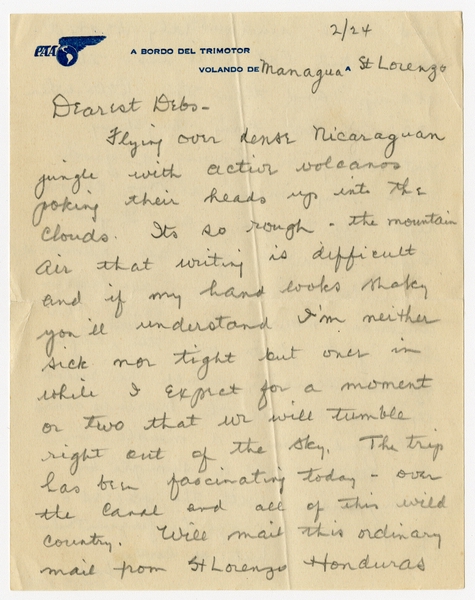 2/24
PAA
A BORDO DEL TRIMOTOR
VOLANDO DE Managua A St Lorenzo
Dearest Debs-
Flying over dense Nicaraguan
jungle with active volcanos
poking their heads up into the
clouds. Its so rough - the mountain
air that writing is difficult
and if my hand looks shaky
you'll understand I'm neither
sick nor tight but once in
while I expect for a moment
or two that we will tumble
right out of the sky. The trip
has been fascinating today - over
the Canal and all of this wild
country. Will mail this ordinary
mail from St Lorenzo Honduras